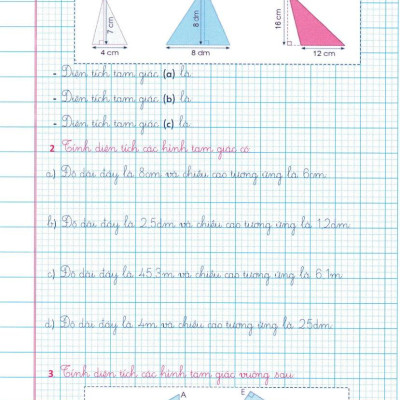 7 cm
8 dm
16 cm
4 cm
8 dm
12 cm
- Diện tích tam giác (a) là
- Diện tích tam giác (b) là
- Diện tích tam giác (c) là
2 Tính diện tích các hình tam giác có
a) Độ dài đáy là 8cm và chiều cao tương ứng là 6cm
b) Độ dài đáy là 2,5dm và chiều cao tương ứng là 1,2dm
c) Độ dài đáy là 45,3m và chiều cao tương ứng là 6,1m
d) Độ dài đáy là 4m và chiều cao tương ứng là 25dm
3 Tính diện tích các hình tam giác vuông sau
A
E